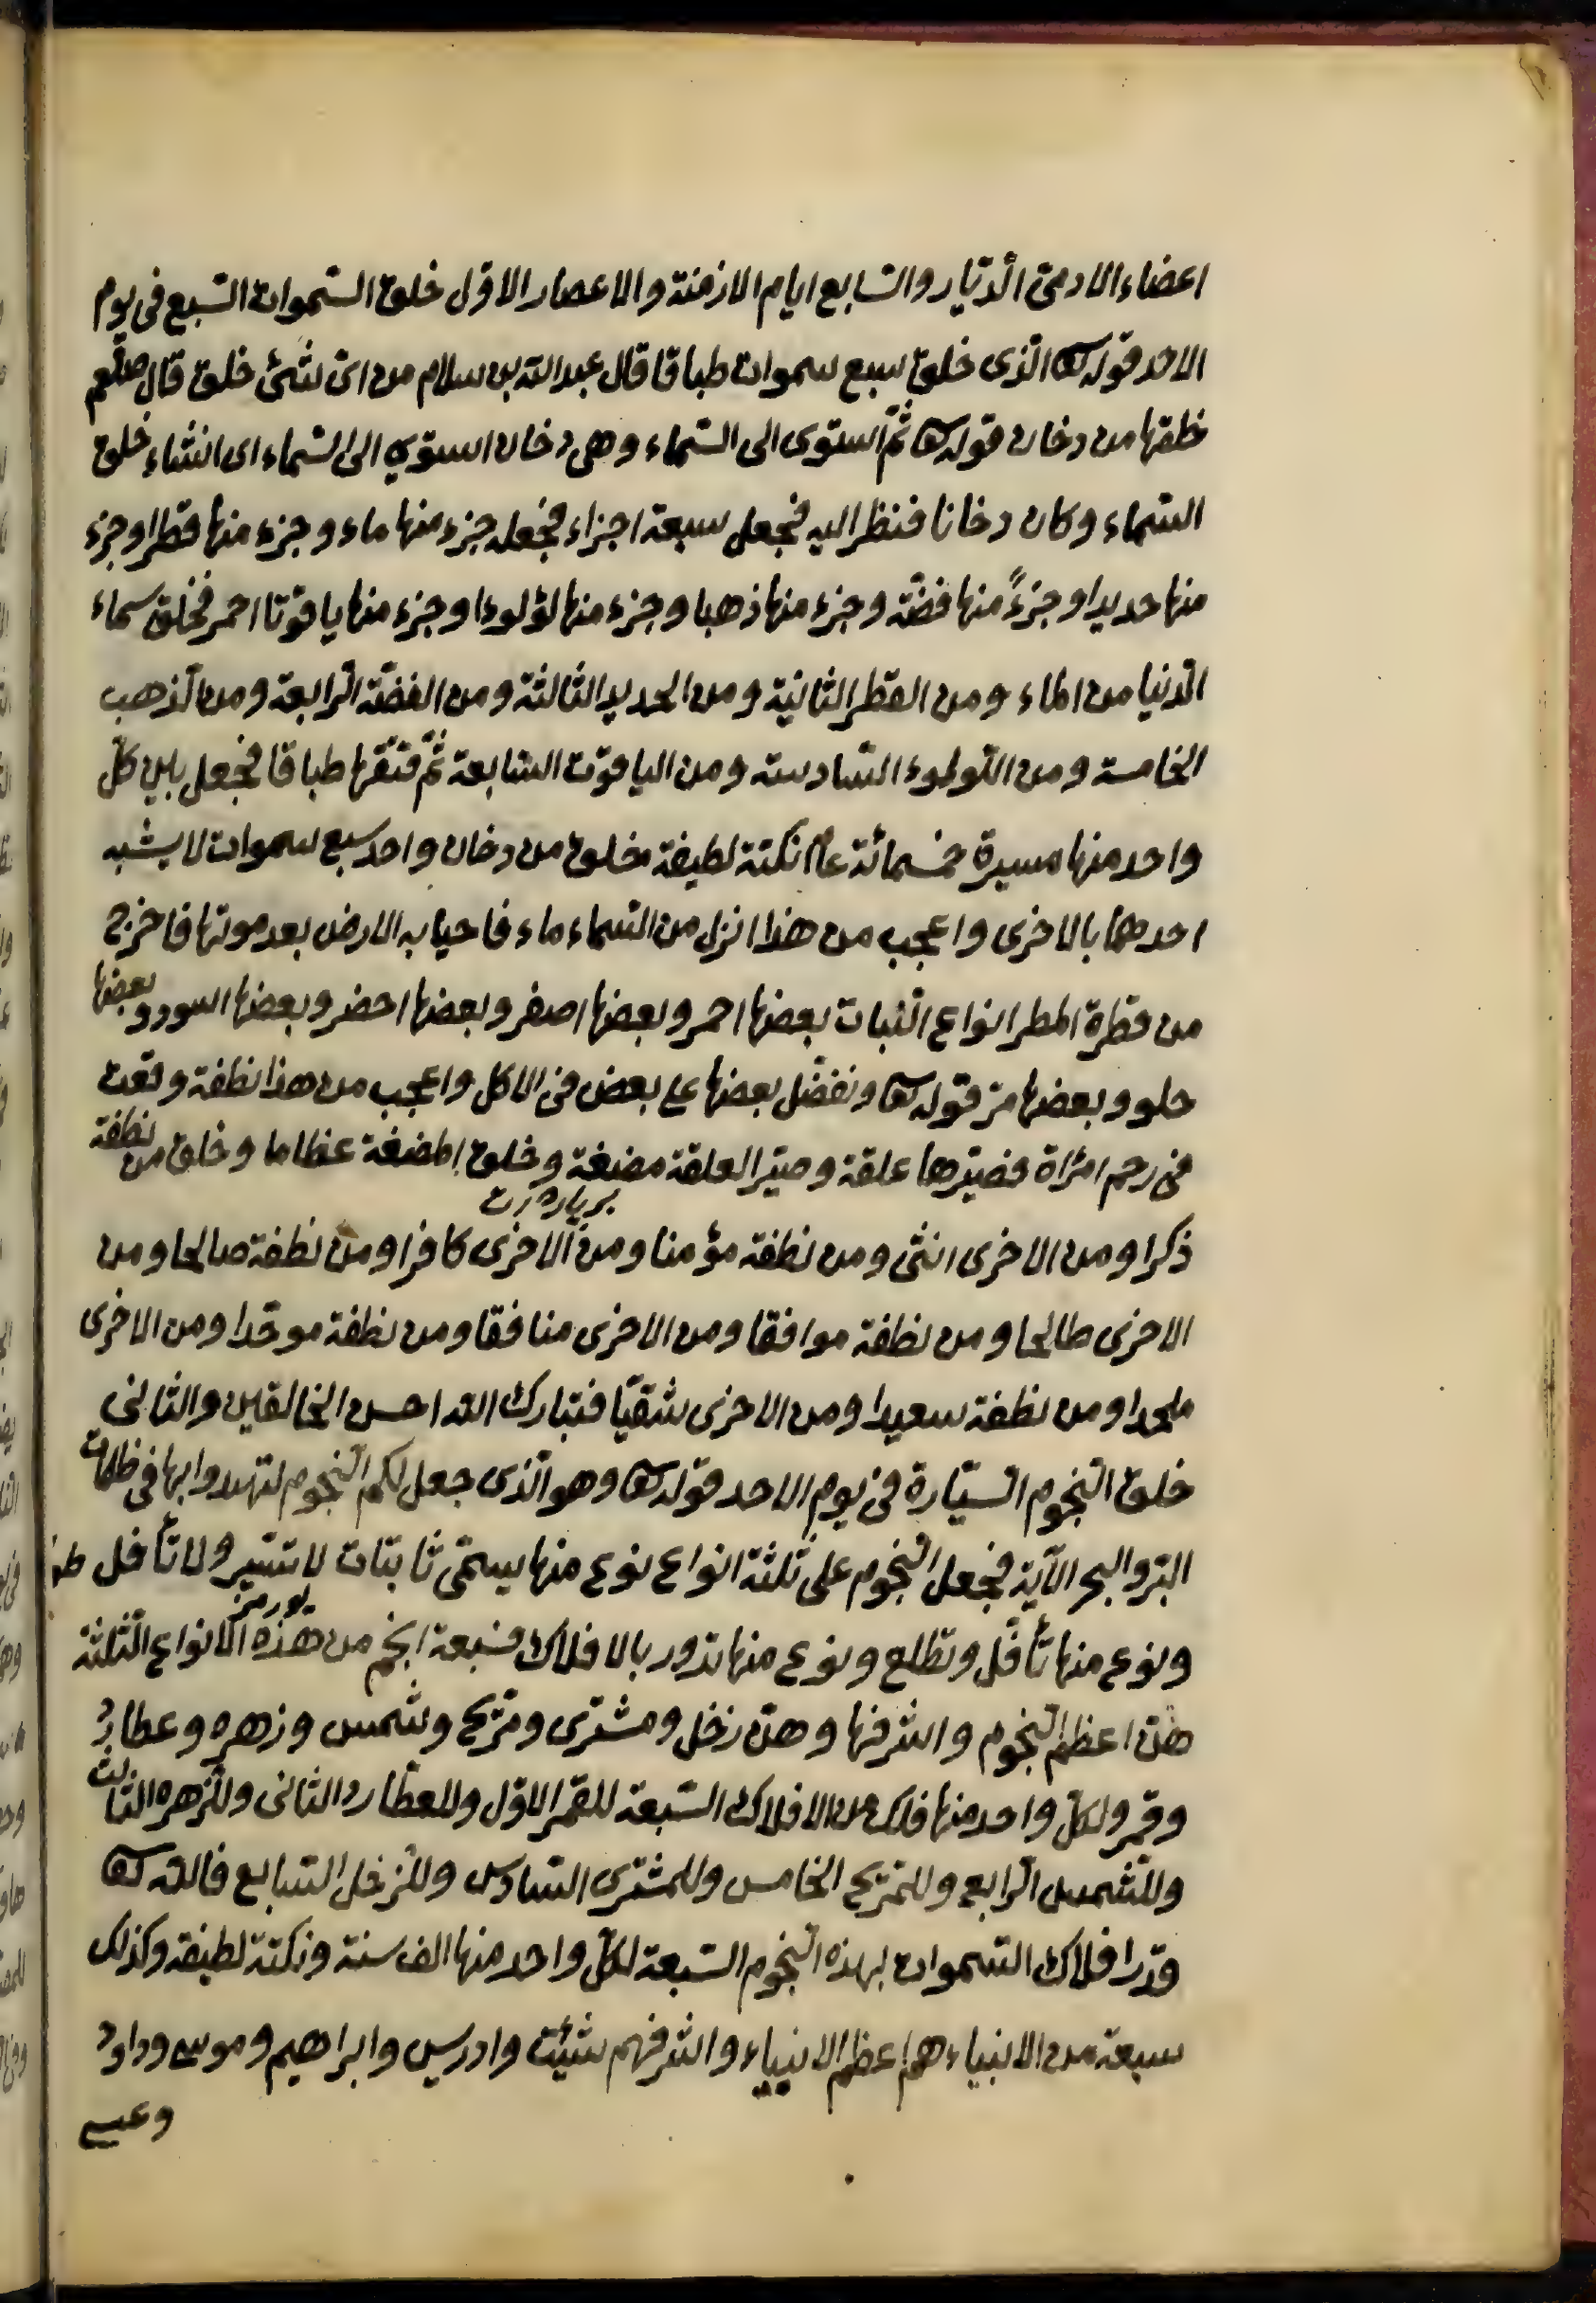 اعضاء الادمىّ الّديّار والسّابع ايام الازمنة والاعصار الاوّل خلق السّموات السّبع فى يوم
الاحد قوله تعالى الّذى خلق سبع سموات طباقا قال عبد الله بن سلام من اىّ شئ خلق قال صلعم
خلقها من دخان قوله تعالى ثمّ استوى الى السّماء وهى دخان استوي الى السّماء اى انشاء خلق
السّماء وكان دخانا فنظر اليه فجعل سبعة اجزاء فجعله جزء منها ماء وجزء منها قطرا وجزء
منها حديدا وجزءً منها فضّة وجزء منها ذهبا وجزء منها لؤلوءا وجزء منها ياقوتا احمر فخلق سماء
الدّنيا من الماء ومن القطر الثانية ومن الحديد الثالثة ومن الفضّة الرّابعة ومن الّذهب
الخامسة ومن اللّولوء السّادسته ومن الياقوت السّابعة ثمّ فتقها طباقا فجعل بين كلّ
واحد منها مسيرة خمسمائة عام نكتة لطيفة خلق من دخان واحد سبع سموات لا يشبه
احدهما بالاخرى واعجب من هذا انزل من السّماء ماء فاحيا به الارض بعد موتها فاخرج
من قطرة المطر انواع النّبات بعضها احمر وبعضها اصفر وبعضها اخضر وبعضها اسود وبعضها
حلو وبعضها مرّ قوله تعالى ونفضّل بعضها على بعض فى الاكل واعجب من هذا نطفة وقعت
فى رحم امراة فصيّرها علقة وصيّر العلقة مضغة وخلق المضغة عظاما وخلق من نطفة
ذكرا ومن الاخرى انثى ومن نطفة مؤمنا ومن الاخرى كافرا ومن نطفة صالحا ومن
الاخرى طالحا ومن نطفة موافقا ومن الاخرى منافقا ومن نطفة موحّدا ومن الاخرى
ملحدا ومن نطفة سعيدا ومن الاخرى شقيّا فتبارك الله احسن الخالقين والثانى
خلق النّجوم السّيّارة فى يوم الاحد قوله تعالى وهو الّذى جعل لكم النّجوم لتهتدوا بها فى ظلمات
البرّ والبحر الآية فجعل النّجوم على ثلثة انواع نوع منها يسمّى ثابتات لا تسير ولا تأفل
ونوع منها تأفل وتطلع ونوع منها تدور بالافلاك فسبعة انجم من هذه الانواع الثّلثة
هنّ اعظم النّجوم واشرفها وهنّ زخل ومشترى ومرّيخ وشمس وزهره وعطارد
وقمر ولكلّ واحد منها فلك من الافلاك السّبعة للقمر الاوّل وللعطارد الثانى وللزّهره الثالث
وللشّمس الرّابع وللمرّيخ الخامس وللمشترى السّادس وللزّخل السّابع فالله تعالى
قدّر افلاك السّموات بهذه النّجوم السّبعة لكلّ واحد منها الف سنة ونكتة لطيفة وكذلك
سبعة من الانبياء هم اعظم الانبياء واشرفهم شيئت وادريس وابراهيم وموسى وداود
وعيسى